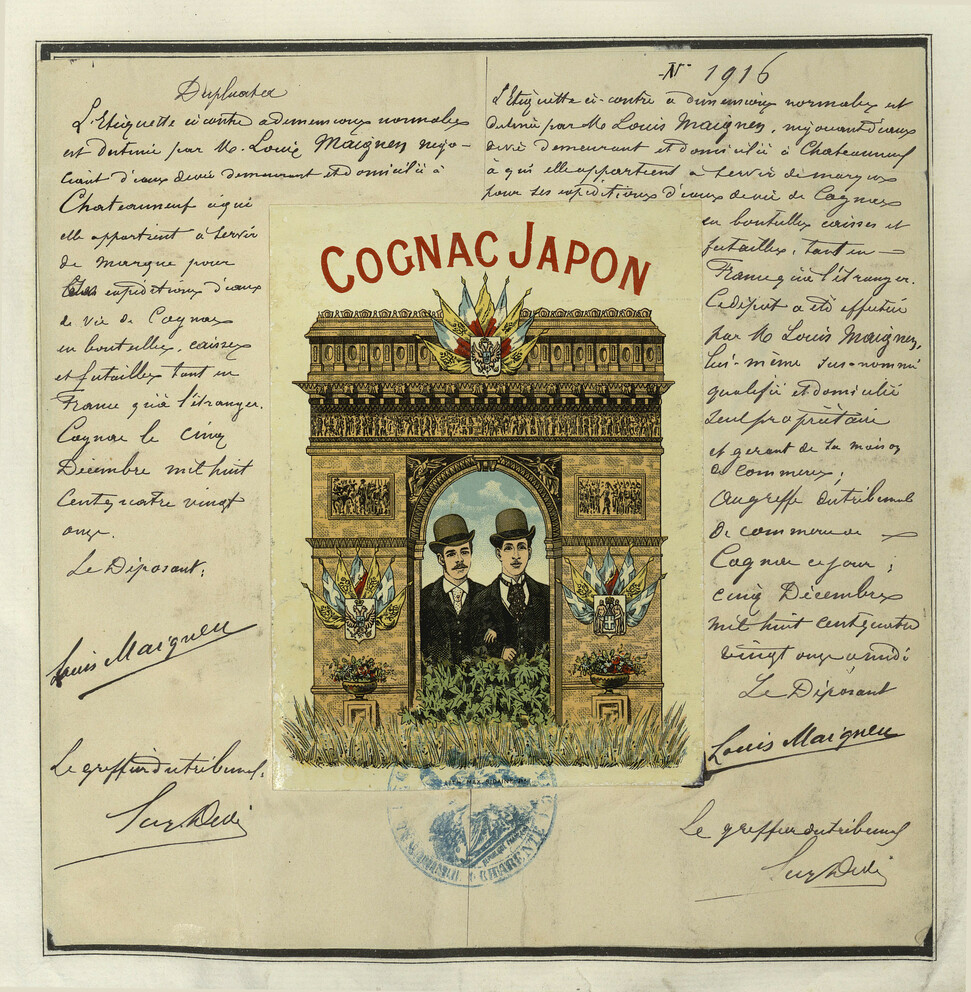 Duplicata
L'Etiquette ci contre a dimensions normales
est destinée par M. Louis Maignen négo-
ciant d'eaux devie demeurant et domicilié à
Chateauneuf à qui
elle appartient à servir
de marque pour
ses expéditions d'eaux
de vie de Cognac
en bouteilles, caisses
et futailles tant en
France qu'à l'étranger.
Cognac le cinq
Décembre mil huit
cent quatre vingt
onze.
Le Déposant,
Louis Maignen
Le greffier du tribunal,
N° 1916
L'Etiquette ci-contre a dimensions normales est
destinée par M. Louis Maignen, négociant d'eaux
devie demeurant et domicilié à Chateauneuf
à qui elle appartient à servir de marque
pour ses expéditions d'eaux de vie de Cognac
en bouteilles caisses et
futailles, tant en
France qu'à l'étranger.
Ce dépôt a été effectué
par M. Louis Maignen,
lui-même sus-nommé
qualifié et domicilié
seul propriétaire
et gerant de sa maison
de commerce,
au greffe du tribunal
de commerce de
Cognac ce jour,
cinq Décembre
mil huit cent quatre
vingt onze à midi
Le Déposant
Louis Maignen
Le greffier du tribunal
COGNAC JAPON
CHARENTE